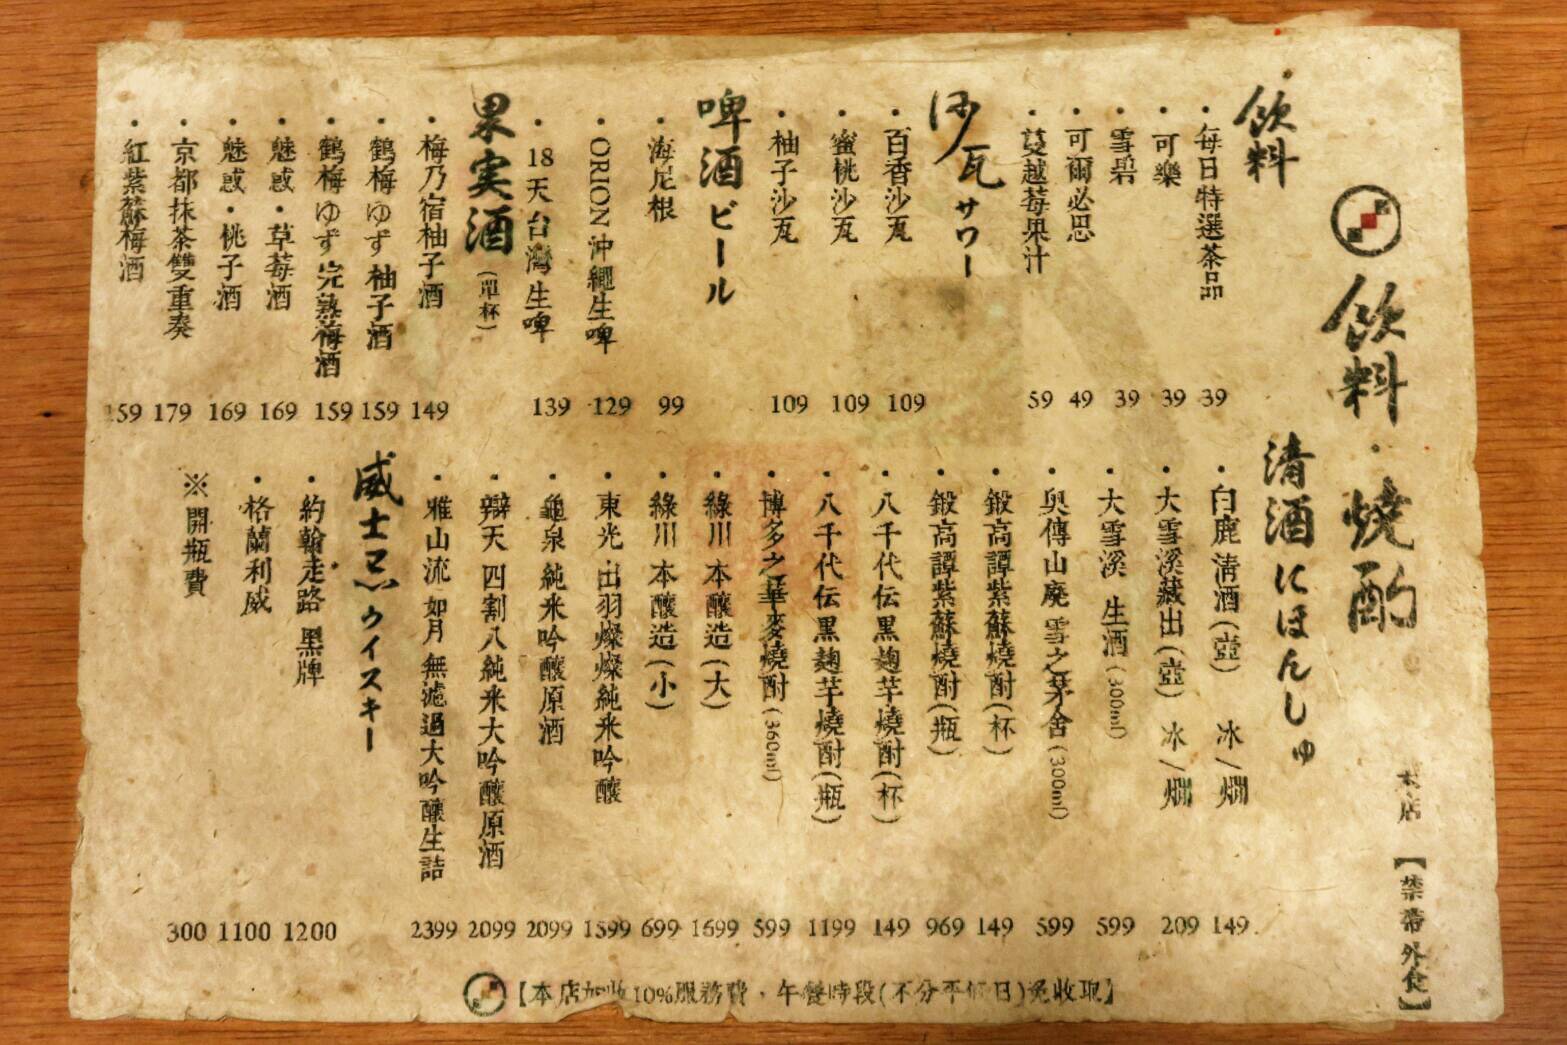 飲料・燒酌
本店【禁帶外食】
飲料
・每日特選茶品 39
・可樂 39
・雪碧 39
・可爾必思 49
・蔓越莓果汁 59
沙瓦サワー
・百香沙瓦 109
・蜜桃沙瓦 109
・柚子沙瓦 109
啤酒ビール
・海尼根 99
・ORION沖繩生啤 129
・18天台灣生啤 139
果実酒(單杯)
・梅乃宿柚子酒 149
・鶴梅ゆず柚子酒 159
・鶴梅ゆず完熟梅酒 159
・魅惑・草莓酒 169
・魅惑・桃子酒 169
・京都抹茶雙重奏 179
・紅紫蘇梅酒 159
清酒にほんしゅ
・白鹿清酒(壺) 冰/燗 149
・大雪溪藏出(壺) 冰/燗 209
・大雪溪 生酒(300ml) 599
・奥傳山廃 雪之茅舍(300ml) 599
・鍛高譚紫蘇燒酎(杯) 149
・鍛高譚紫蘇燒酎(瓶) 969
・八千代伝黒麹芋燒酎(杯) 149
・八千代伝黒麹芋燒酎(瓶) 1199
・博多之華麥燒酎(360ml) 599
・綠川 本釀造(大) 1699
・綠川 本釀造(小) 699
・東光 出羽燦燦純米吟釀 1599
・龜泉 純米吟釀原酒 2099
・辯天 四割八純米大吟釀原酒 2099
・雅山流 如月 無濾過大吟釀生詰 2399
威士忌ウイスキー
・約翰走路 黑牌 1200
・格蘭利威 1100
※開瓶費 300
【本店加收10%服務費・午餐時段(不分平假日)免收取】